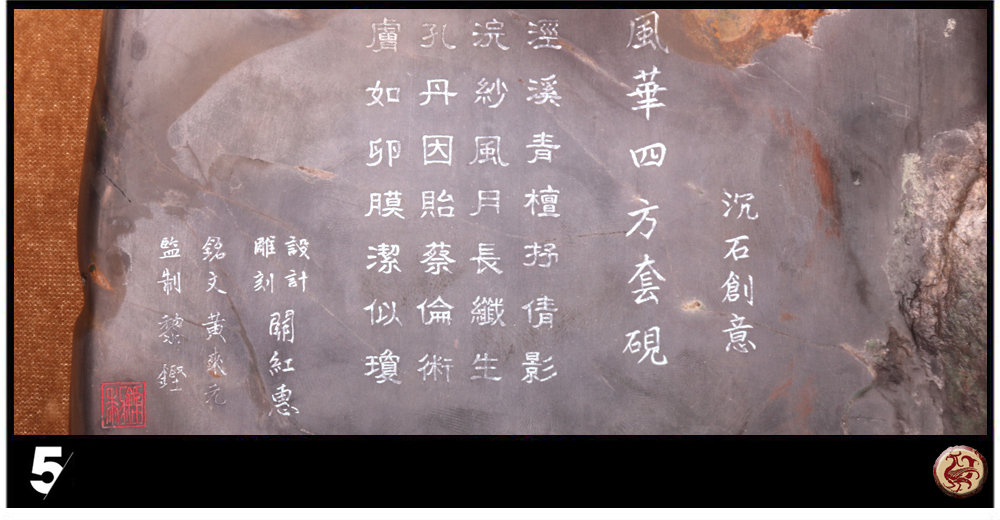 沉石創意
風華四方套硯
涇溪青檀抒倩影
浣紗風月長纖生
孔丹因貽蔡倫術
膚如卵膜潔似瓊
設計
雕刻
關紅惠
銘文 黃爽元
監制 黎鏗
5